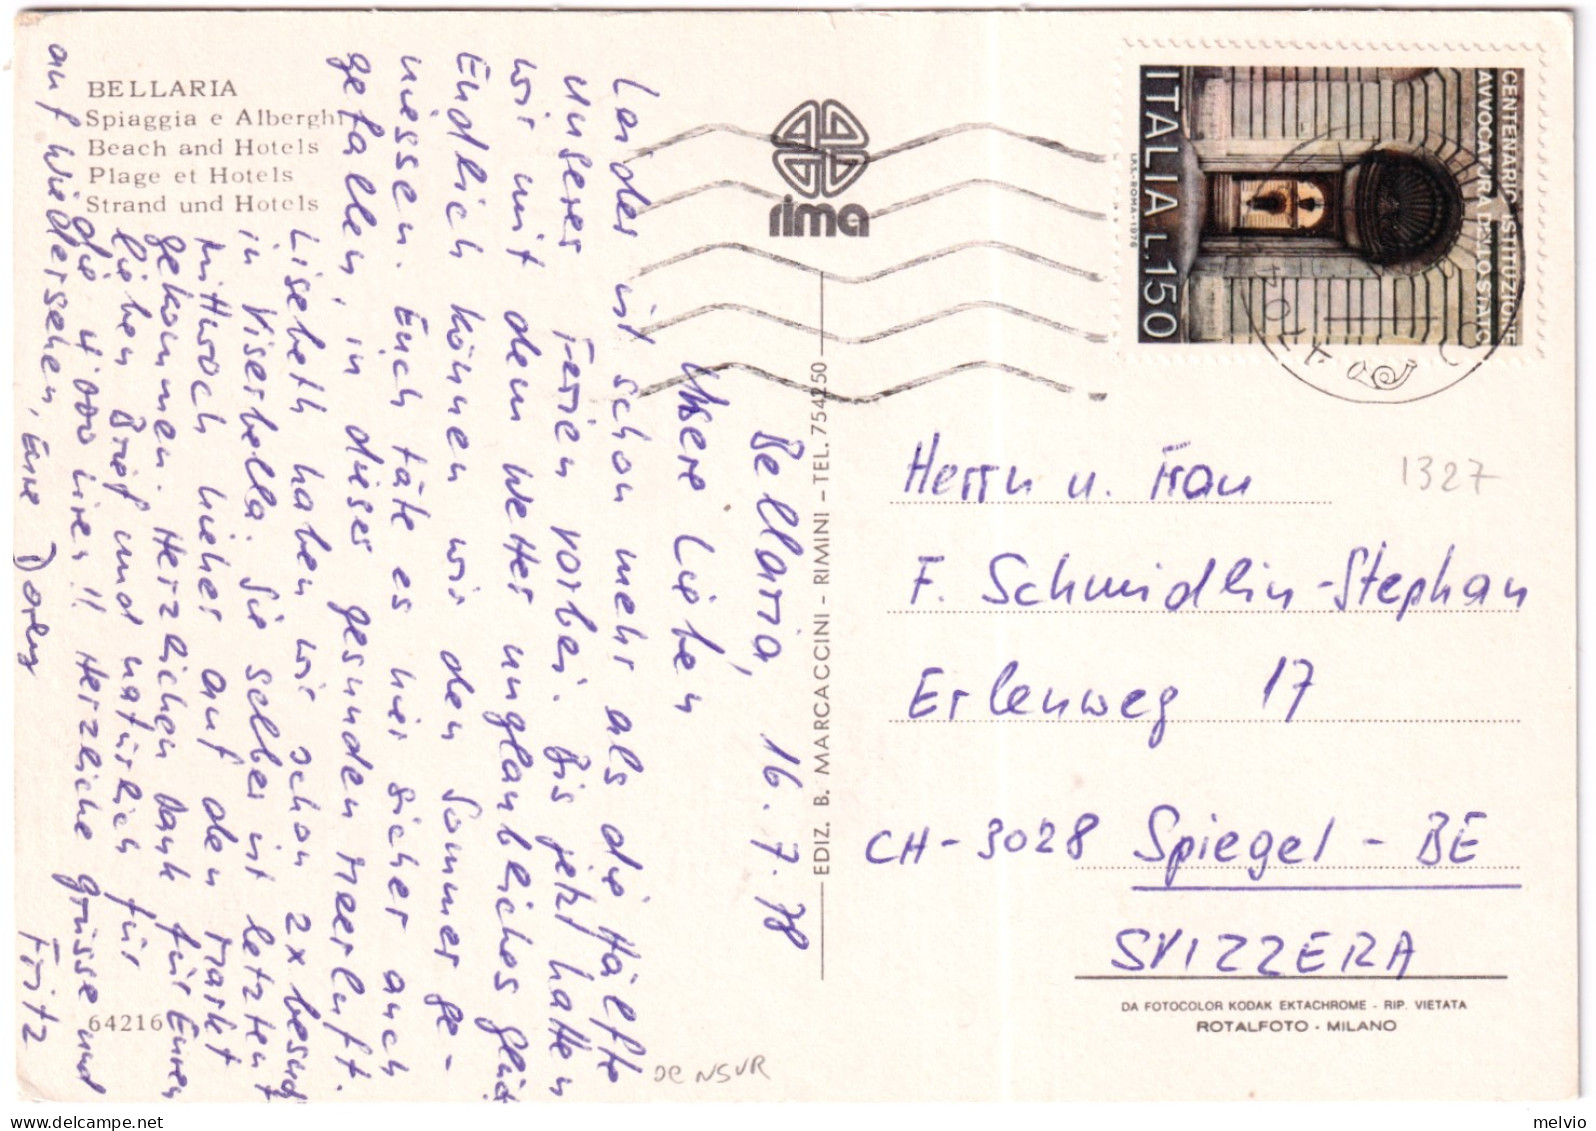 BELLARIA
Spiaggia e Alberghi
Beach and Hotels
Plage et Hotels
Strand und Hotels
64216
rima
EDIZ. B. MARCACCINI - RIMINI - TEL. 754250
ITALIA L.150
CENTENARIO ISTITUZIONE
AVVOCATURA DELLO STATO
I.P.S.-ROMA-1976
Bellaria, 16.7.78
Unsere Lieben
Leider ist schon mehr als die Hälfte
unserer Ferien vorbei. Bis jetzt hatten
wir mit dem Wetter unglaubliches Glück
Endlich können wir den Sommer ge-
niessen. Euch täte es hier sicher auch
gefallen, in dieser gesunden Meerluft.
Lisebeth haben wir schon 2x besucht
in Viserbella. Sie selber ist letzten
Mittwoch hieher auf den Markt
gekommen. Herzlichen Dank für Euren
lieben Brief und natürlich für
die 4'000 Lire!! Herzliche Grüsse und
auf Wiedersehen, Eure Doris Fritz
Herrn u. Frau
F. Schmidlin-Stephan
Erlenweg 17
CH-3028 Spiegel - BE
SVIZZERA
1327
DA FOTOCOLOR KODAK EKTACHROME - RIP. VIETATA
ROTALFOTO - MILANO
delcampe.net
melvio